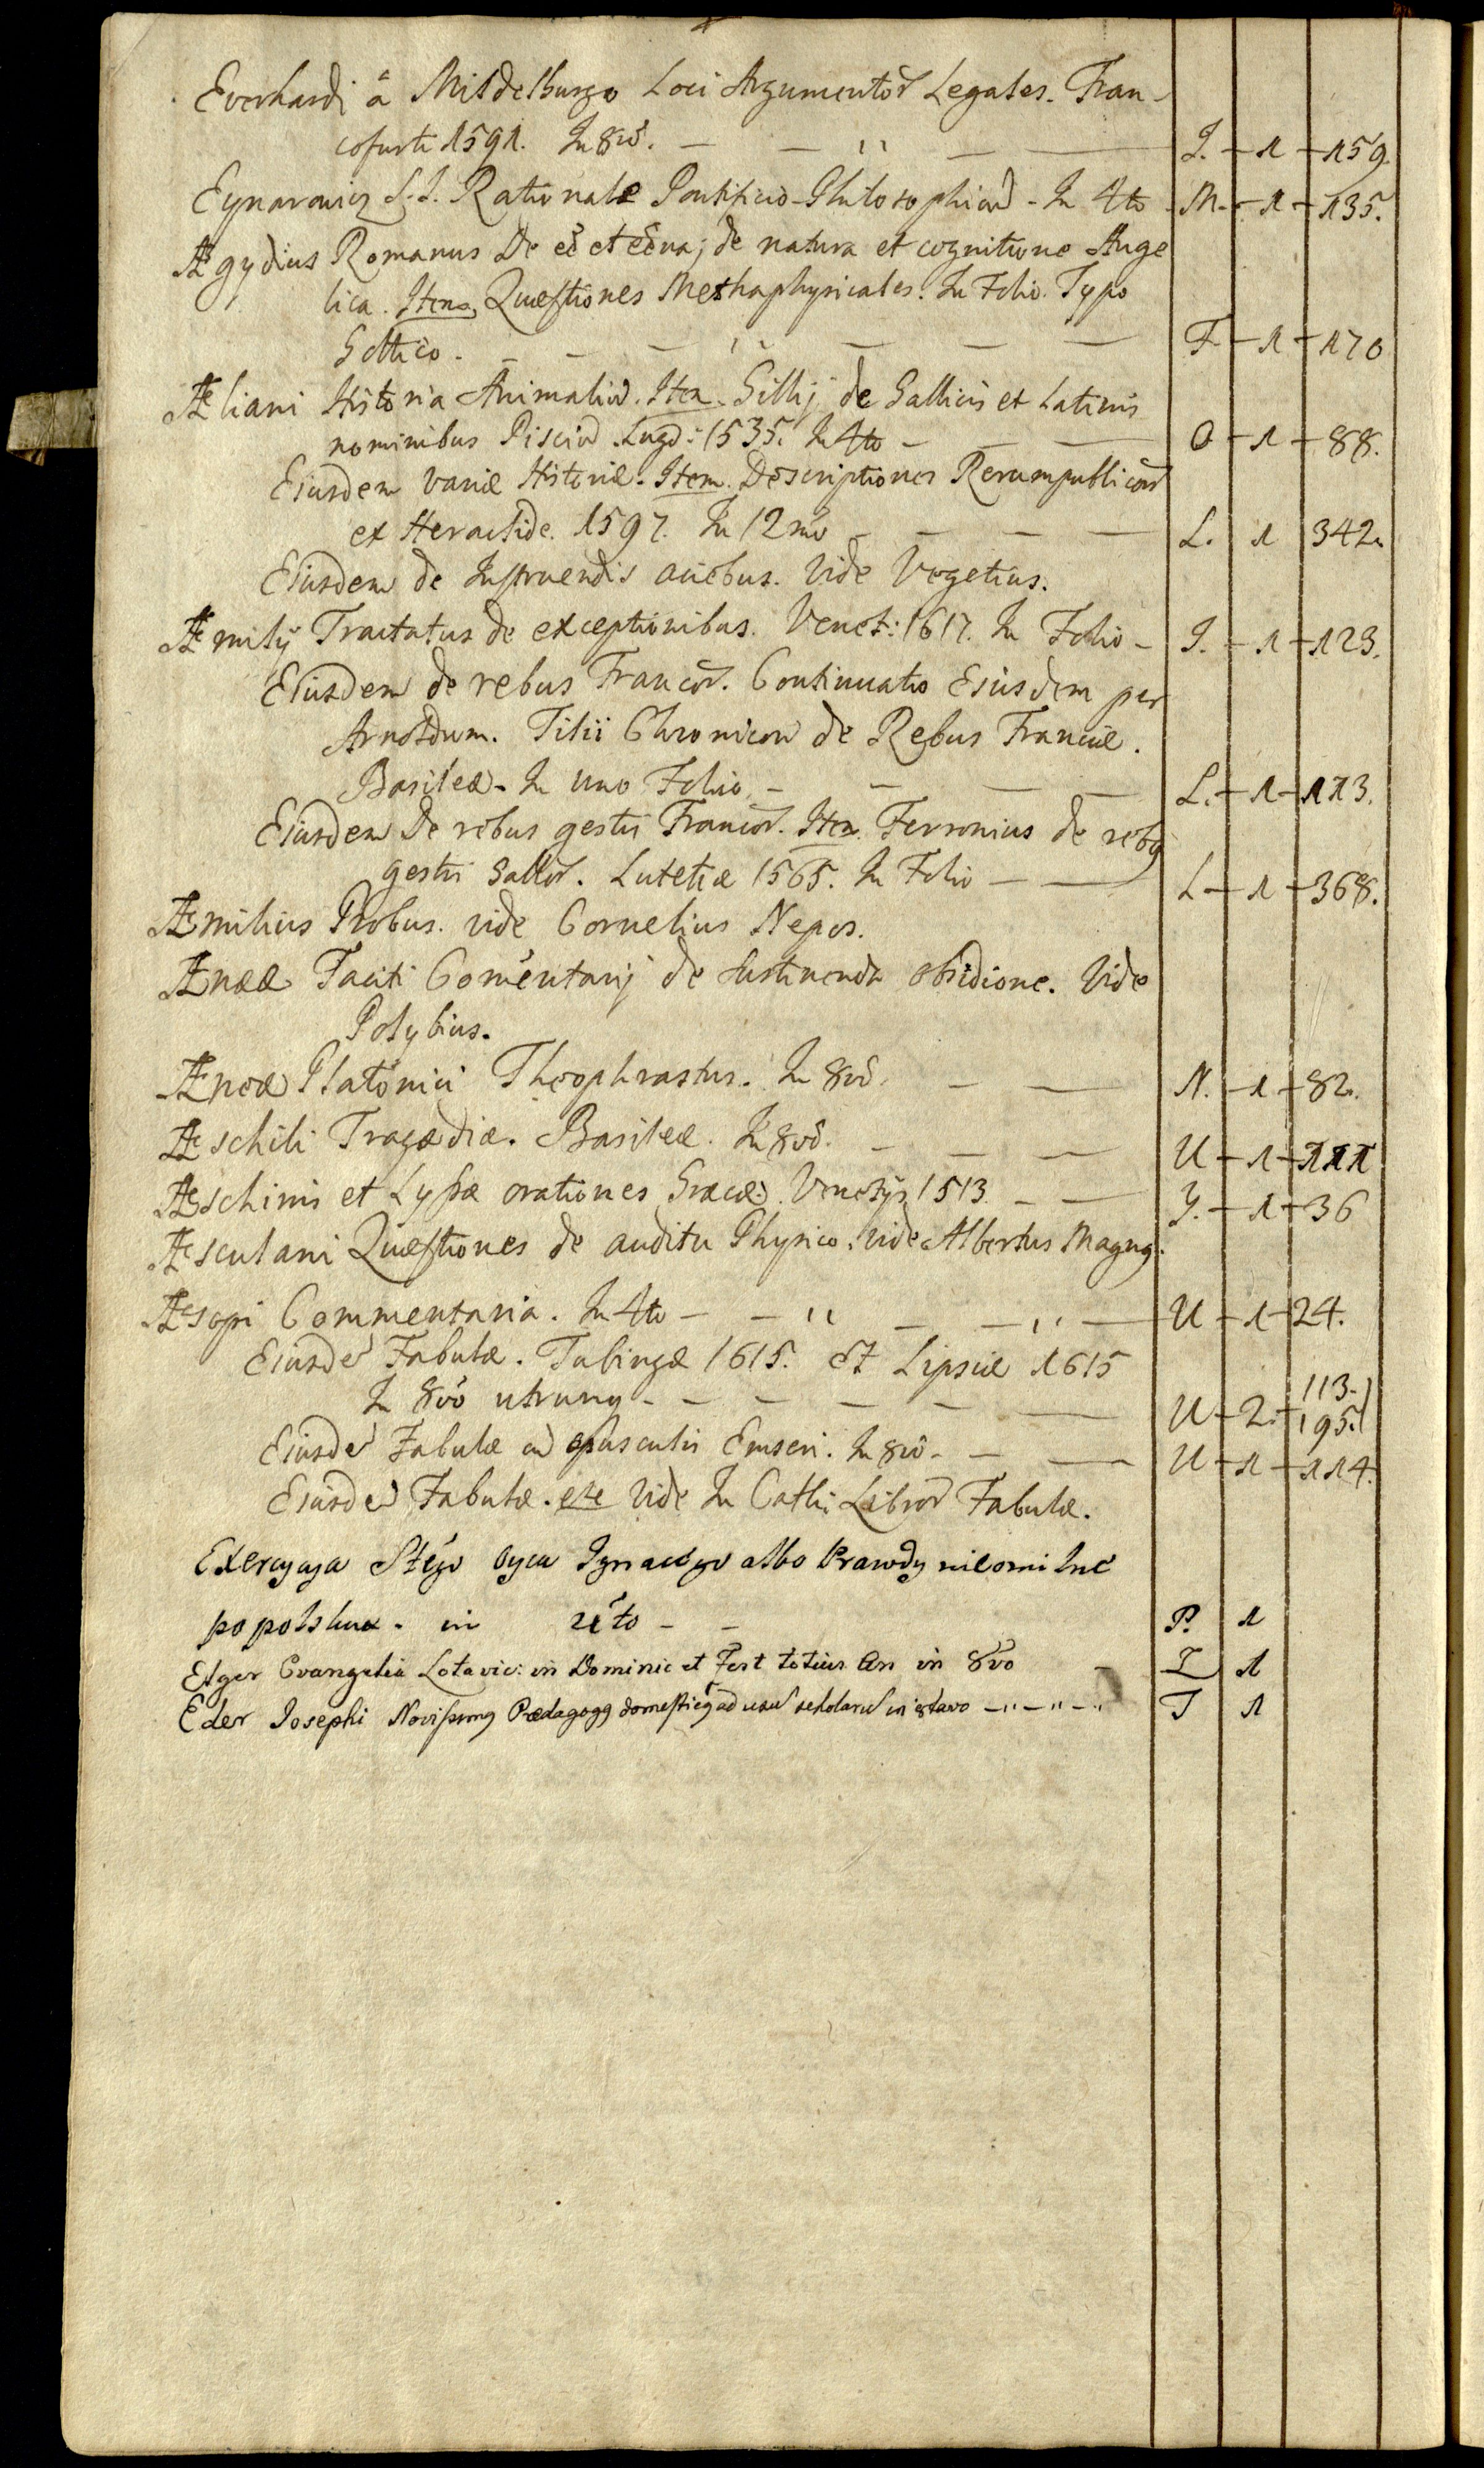 Everhardi â Middelburgo Loci Argumentor̃ Legales. Fran-
cofurti 1591. In 8vo. — — " — — I. - 1 - 159.
Eynarowicz S.I. Rationale Pontificio-Philosophicũ - In 4to M. - 1 - 135.
Ægydius Romanus De eẽ et eẽna; de natura et cognitione Ange
lica. Item Quæstiones Methaphysicales. In Folio. Typo
Gottico. — — — " — — — F - 1 - 170
Æliani Historia Animaliũ. Item. Gillij de Gallicis et Latinis
nominibus Pisciũ. Lugd: 1535. In 4to — — — O - 1 - 88.
Eiusdem variæ Historiæ. Item. Descriptiones Rerumpublicar̃
ex Heraclide. 1597. In 12mo — — — — L. 1 342.
Eiusdem de Instruendis aciebus. Vide Vegetius.
Æmilij Tractatus de exceptionibus. Venet: 1617. In Folio — I. - 1 - 123.
Eiusdem de rebus Francor̃. Continuatio Eiusdem per
Arnoldum. Tilii Chronicon de Rebus Franciæ.
Basileæ. In uno Folio — — — — L. - 1 - 113.
Eiusdem De rebus gestis Francor̃. Item. Ferronius de rebg
gestis Gallor̃. Lutetiæ 1565. In Folio — — L - 1 - 368.
Æmilius Probus. vide Cornelius Nepos.
Æneæ Taciti Com̃entarij de sustinenda obsidione. Vide
Polybius.
Æneæ Platonici Theophrastus. In 8vo. — — N. - 1 - 82.
Æschili Tragædiæ. Basileæ. In 8vo. — — — U - 1 - 111
Æschinis et Lysiæ orationes Græcæ. Venetijs 1513 — — Y. - 1 - 36
Æsculani Quæstiones de auditu Physico. vide Albertus Magng.
Æsopi Commentaria. In 4to — — " — — " — U - 1 - 24.
Eiusdẽ Fabulæ. Tubingæ 1615. Et Lipsiæ 1615
In 8vo utrumq — — — — — — U - 2. - 113. 195.
Eiusdẽ Fabulæ cũ opusculis Emseri. In 8vo. — — U - 1 - 114.
Eiusdẽ Fabulæ. etc Vide In Cathi: Libror̃ Fabulæ.
Exercycya Stego Oyca Ignacego albo Prawdy nieomilne
po polsku. in 4to — — P. 1
Elger Evangelia Lotavic: in Dominic et Fest totius An in 8vo — I 1
Eder Josephi Novissimg Pædagogg domesticg ad usũ scholarũ in 8tavo — " — " — " T 1